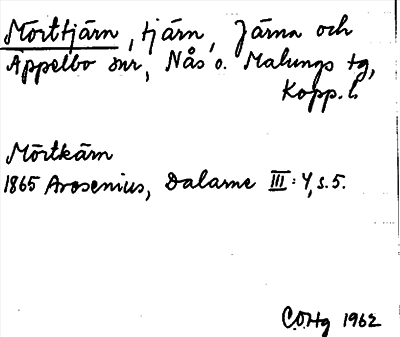 Mörttjärn, tjärn, Järna och
Äppelbo snr, Nås o. Malungs tg,
Kopp. l.
Mörtkärn
1865 Arosenius, Dalarne III: 4, s. 5.
C.O.Hg 1962